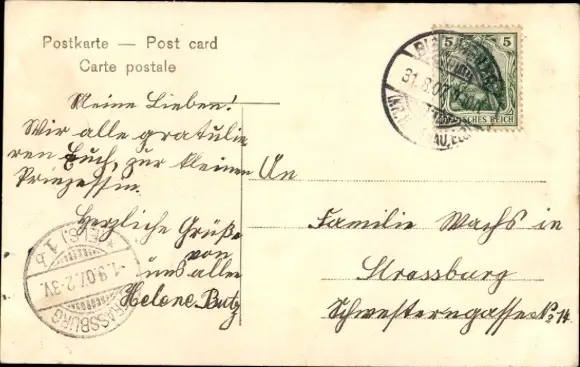 Postkarte — Post card
Carte postale
Meine Lieben!
Wir alle gratulie
ren Euch, zur kleinen
Prinzessin.
Herzliche Grüße
von
uns allen
Helene Butz
An
Familie Wachs in
Strassburg
Schwesterngasse No 14.
5 5
DEUTSCHES REICH
31.8.07
STRASSBURG
(ELS.) 1
1.9.07.2-3V.